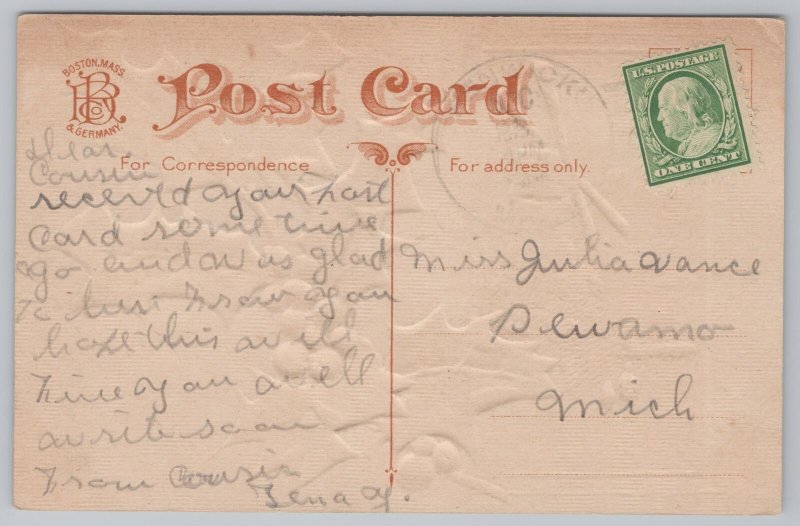 BOSTON, MASS.
BRCo
& GERMANY.
Post Card
For Correspondence
For address only.
U.S. POSTAGE
ONE CENT
Dear
Cousin
received your post
Card some time
ago and was glad
to hear from you
hope this will
fine you well
write soon
From Cousin
Lena Y.
Miss Julia Vance
Pewamo
Mich